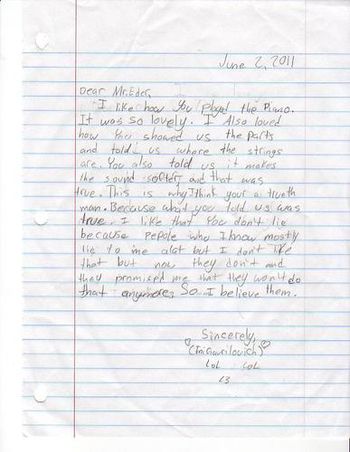 June 2, 2011
Dear Mr.Eder,
I like how You playd the Piano.
It was so lovely. I Also loved
how You showed us the Parts
and told us where the strings
are. You also told us it makes
the sound softer, and that was
true. This is why I think your a trueth
man. Because what you told us was
true. I like that You don't lie
because Pepole who I know mostly
lie to me alot but I don't like
that but now they don't and
they promised me that they won't do
that anymore. So I believe them.
Sincerely,
LoL LoL
<3